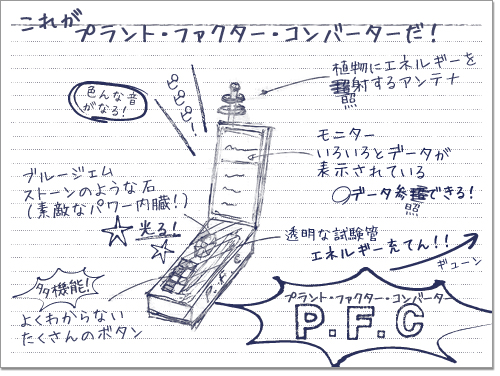 これが
プラント・ファクター・コンバーターだ！
色んな音
がなる！
植物にエネルギーを
照射するアンテナ
モニター
いろいろとデータが
表示されている
○データ参照できる！
ブルージェム
ストーンのような石
(素敵なパワー内臓！)
光る！
透明な試験管
エネルギー充てん！！
ギューン
多機能！
よくわからない
たくさんのボタン
P.F.C
プラント・ファクター・コンバーター
P.F.C